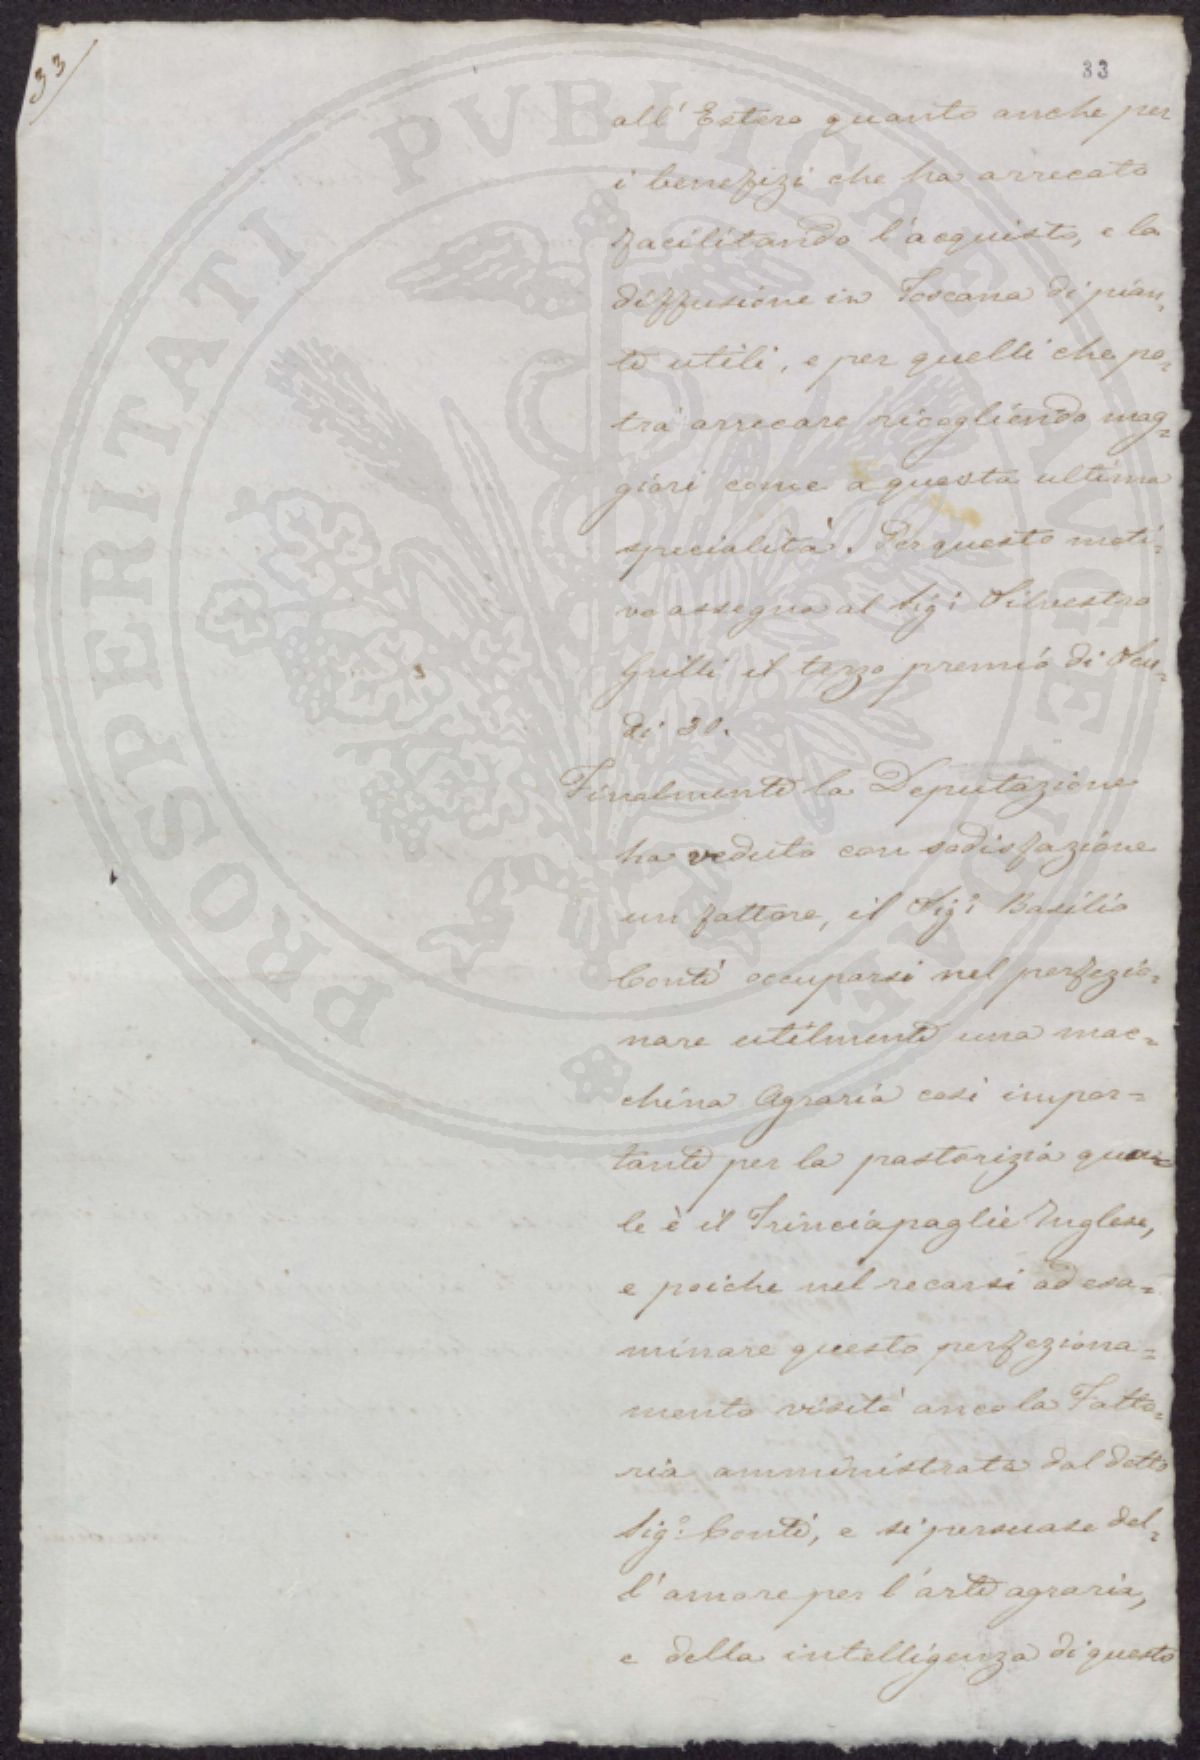 33
33
all' Estero quanto anche per
i benefizi che ha arrecato
facilitando l'acquisto, e la
diffusione in Toscana di pian=
te utili, e per quelli che po=
trà arrecare ricogliendo mag=
giori come a questa ultima
specialità. Per questo moti=
vo assegna al Sig: Silvestro
Grilli il terzo premio di Scu=
di 30.
Finalmente la Deputazione
ha veduto con sodisfazione
un fattore, il Sig: Basilio
Conti occuparsi nel perfezio=
nare utilmente una mac=
china Agraria così impor=
tante per la pastorizia qua=
le è il Trinciapaglie Inglese,
e poiche nel recarsi ad esa=
minare questo perfeziona=
mento visitò anco la Fatto=
ria amministrata dal detto
Sig: Conti, e si persuase del=
l'amore per l'arte agraria,
e della intelligenza di questo
PROSPERITATI PVBLICAE AVGENDAE